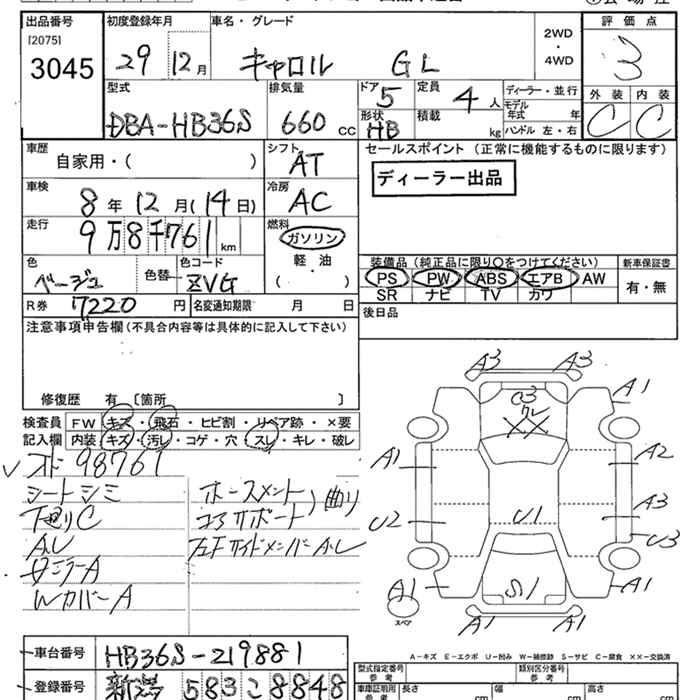 出品番号
[2075]
3045
初度登録年月
29 12月
車名・グレード
キャロル GL
2WD
・
4WD
評価点
3
外装 内装
C C
型式
DBA-HB36S
排気量
660 CC
ドア 定員
5 4人
形状 積載
HB kg
ディーラー・並行
モデル
年式 年
ハンドル 左・右
車歴
自家用・( )
シフト
AT
セールスポイント (正常に機能するものに限ります)
ディーラー出品
車検
8年12月(14日)
冷房
AC
走行
9万8千761km
燃料
ガソリン
軽・油
( )
色
ベージュ
色替
色コード
ZVG
装備品 (純正品に限り○をつけてください)
PS PW ABS エアB AW
SR ナビ TV カワ
新車保証書
有・無
R券 7220円
名変通知期限 月 日
後日品
注意事項申告欄 (不具合内容等は具体的に記入して下さい)
修復歴 有 〔箇所 〕
検査員
記入欄
FW キズ・飛石・ヒビ割・リペア跡・×要
内装 キズ・汚レ・コゲ・穴・スレ・キレ・破レ
98761
シートシミ
下廻りC
AUC
WカバーA
ホースメント
コアサポート
曲り
A3 A3
A1
XX
A1
A2
U2
U1
A3
U3
A1
S1
A1
A1 A1
スペア
A-キズ E-エクボ U-凹み W-補修跡 S-サビ C-腐食 ××-交換済
車台番号 HB36S-219881
登録番号 新潟 583 8848
型式指定番号
参考
類別区分番号
参考
車庫証明用
参考
長さ cm
幅 cm
高さ cm